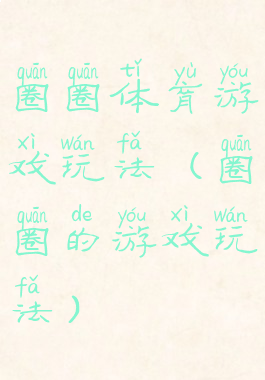 quān quān tǐ yù yóu
圈圈体育游
xì wán fǎ quān
戏玩法（圈
quān de yóu xì wán
圈的游戏玩
fǎ
法）